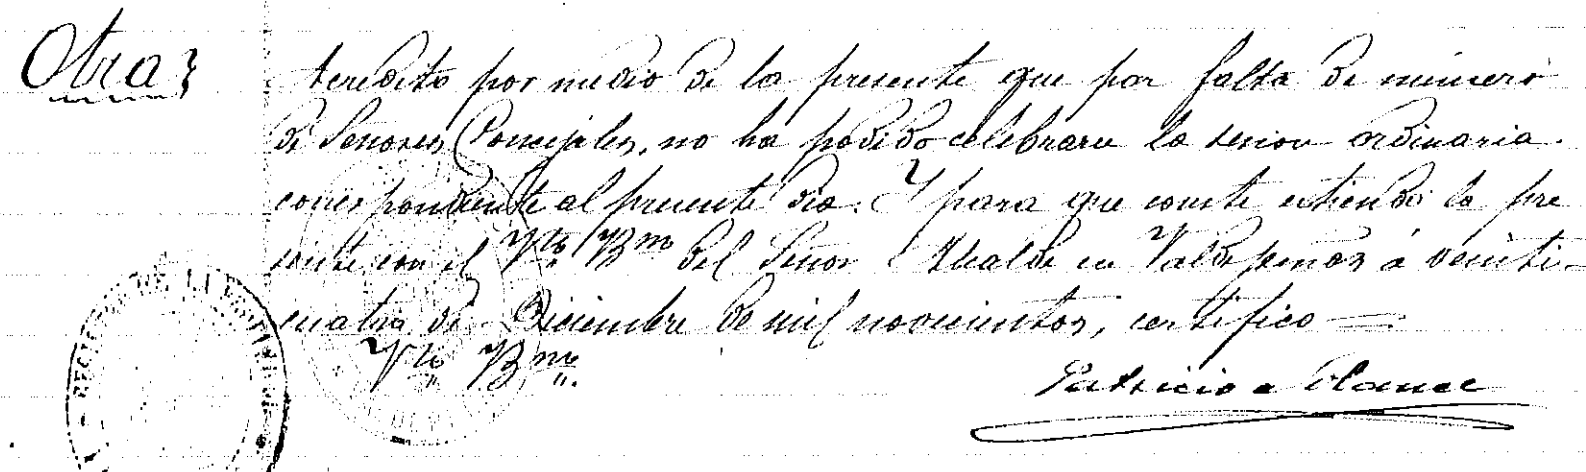 Otra
Acredito por medio de la presente que por falta de número
de Señores Concejales, no ha podido celebrarse la sesion ordinaria
correspondiente al presente dia. Y para que conste estiendo la pre
sente con el Vto Bno del Señor Alcalde en Valdepeñas á veinti-
cuatro de Diciembre de mil novecientos, certifico
Vto Bno
Patricio
DE LA